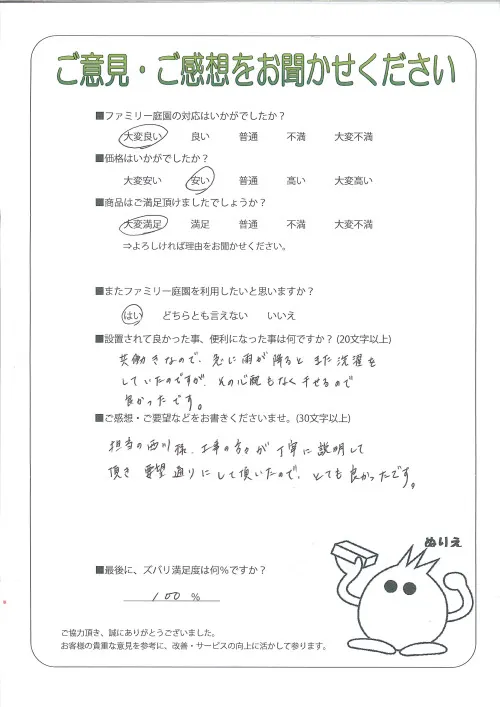 ご意見・ご感想をお聞かせください
■ファミリー庭園の対応はいかがでしたか？
大変良い 良い 普通 不満 大変不満
■価格はいかがでしたか？
大変安い 安い 普通 高い 大変高い
■商品はご満足頂けましたでしょうか？
大変満足 満足 普通 不満 大変不満
⇒よろしければ理由をお聞かせください。
■またファミリー庭園を利用したいと思いますか？
はい どちらとも言えない いいえ
■設置されて良かった事、便利になった事は何ですか？(20文字以上)
共働きなので、急に雨が降るとまた洗濯を
していたのですが、その心配もなく干せるので
良かったです。
■ご感想・ご要望などをお書きくださいませ。(30文字以上)
担当の西川様、工事の方々が丁寧に説明して
頂き 要望通りにして頂いたので、とても良かったです。
ぬりえ
■最後に、ズバリ満足度は何％ですか？
100 %
ご協力頂き、誠にありがとうございました。
お客様の貴重な意見を参考に、改善・サービスの向上に活かして参ります。